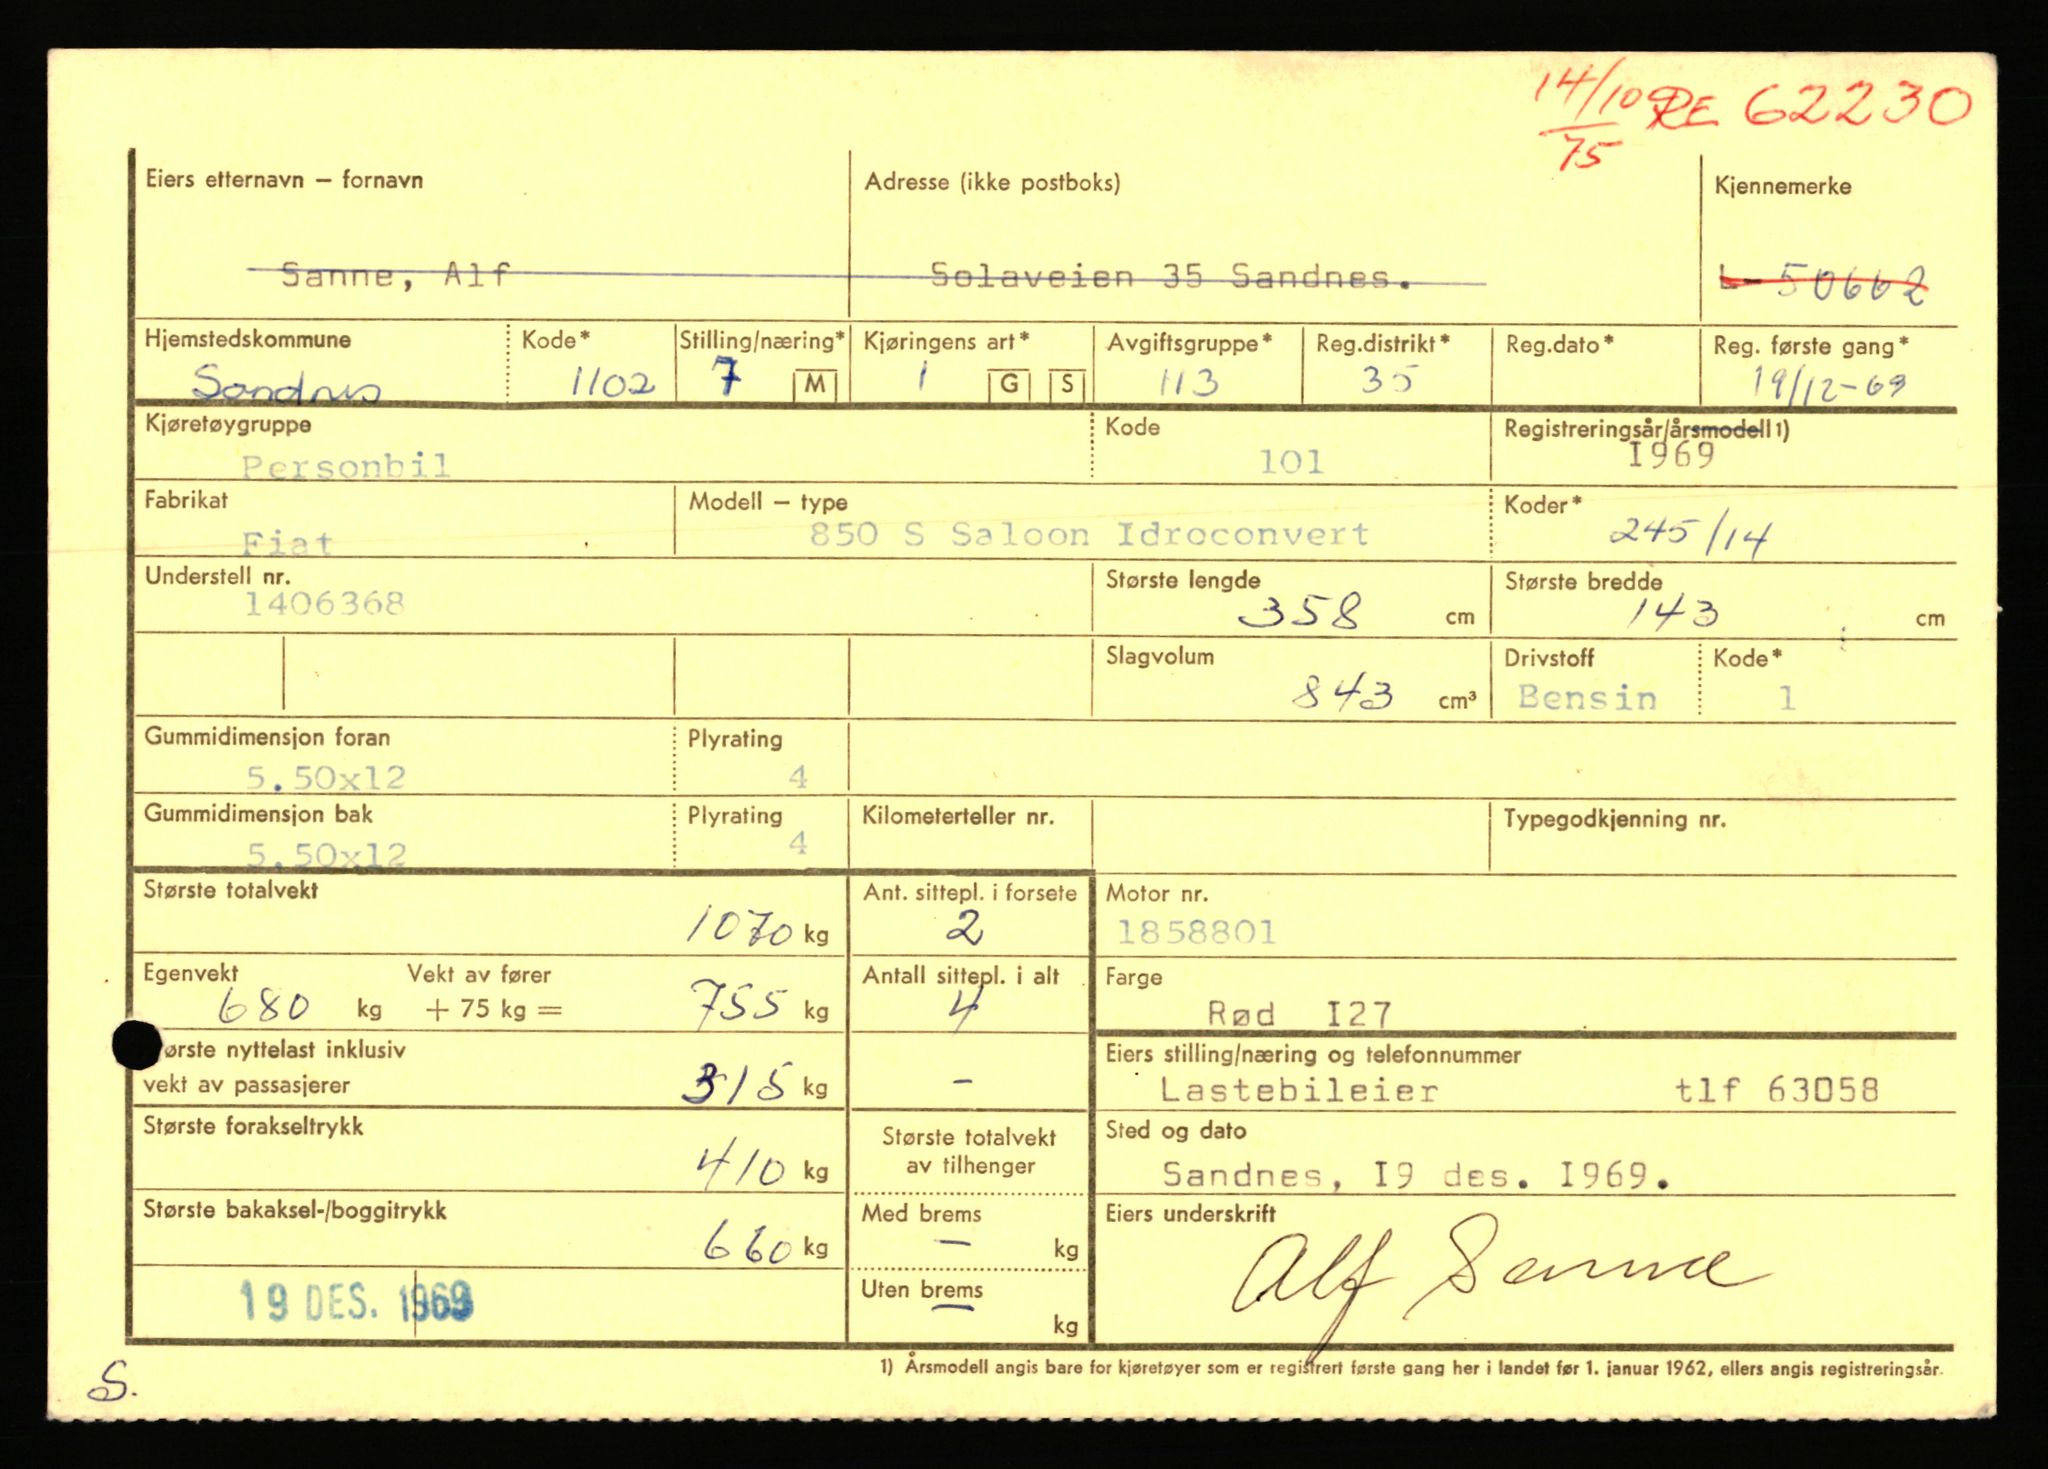 14/10 75 RE 62230
Eiers etternavn – fornavn Adresse (ikke postboks) Kjennemerke
Sanne, Alf Solaveien 35 Sandnes. L- 50662
Hjemstedskommune Kode* Stilling/næring* Kjøringens art* Avgiftsgruppe* Reg.distrikt* Reg.dato* Reg. første gang*
Sandnes 1102 7 M 1 G S 113 35 19/12-69
Kjøretøygruppe Kode Registreringsår/årsmodell 1)
Personbil 101 I969
Fabrikat Modell – type Koder*
Fiat 850 S Saloon Idroconvert 245/14
Understell nr. Største lengde Største bredde
1406368 358 cm 143 cm
Slagvolum Drivstoff Kode*
843 cm³ Bensin 1
Gummidimensjon foran Plyrating
5.50x12 4
Gummidimensjon bak Plyrating Kilometerteller nr. Typegodkjenning nr.
5.50x12 4
Største totalvekt Ant. sittepl. i forsete Motor nr.
1070 kg 2 1858801
Egenvekt Vekt av fører Antall sittepl. i alt Farge
680 kg + 75 kg = 755 kg 4 Rød I27
ørste nyttelast inklusiv Eiers stilling/næring og telefonnummer
vekt av passasjerer 315 kg – Lastebileier tlf 63058
Største forakseltrykk Største totalvekt Sted og dato
410 kg av tilhenger Sandnes, I9 des. I969.
Største bakaksel-/boggitrykk Med brems Eiers underskrift
660 kg – kg Alf Sanne
19 DES. 1969 Uten brems
– kg
1) Årsmodell angis bare for kjøretøyer som er registrert første gang her i landet før 1. januar 1962, ellers angis registreringsår.
S.